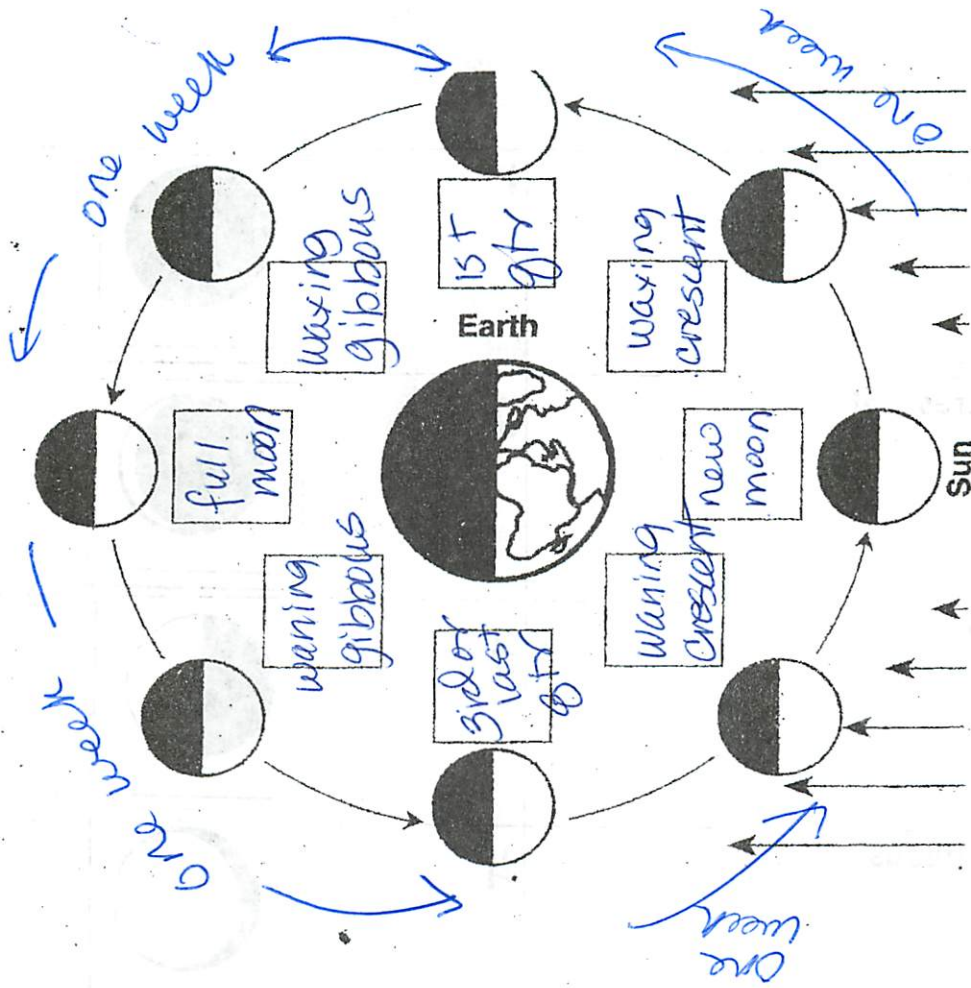 one week
one week
waxing
gibbous
1st
qtr
Earth
waxing
crescent
full
moon
new
moon
Sun
waning
gibbous
3rd or
last
qtr
waning
crescent
one week
one
week